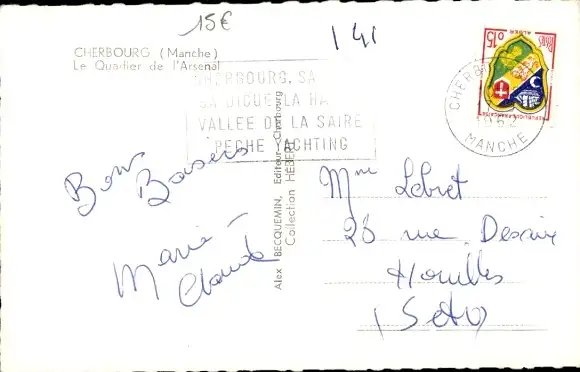 15€
141
CHERBOURG (Manche)
Le Quartier de l'Arsenal
CHERBOURG. SA
SA DIGUE. LA HA
VALLEE DE LA SAIRE
PECHE YACHTING
0,15
ALGER
REPUBLIQUE FRANCAISE
CHERB
1962
MANCHE
Bons
Baisers
Marie-
Claude
Alex BECQUEMIN, Editeur - Cherbourg
Collection HEBERT
Mme Lebret
26 rue Desaix
Houilles
(S et O)